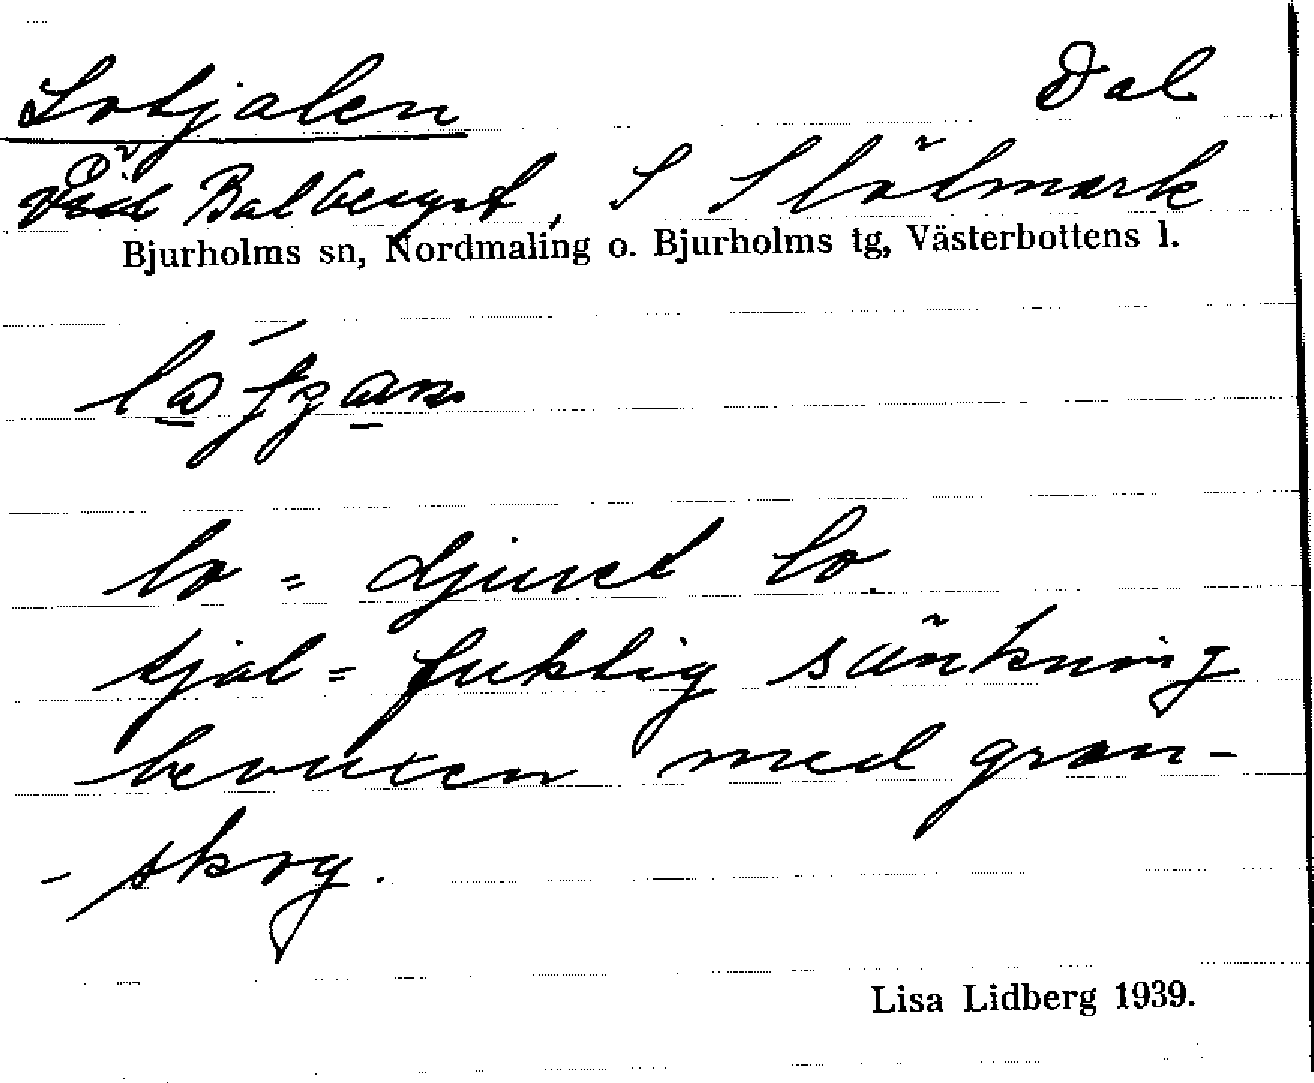 Lotjalen Dal
Balberget, S
Bjurholms sn, Nordmaling o. Bjurholms tg, Västerbottens l.
lo = djuret lo.
tjal = fuktig sänkning
bevuxen med gran-
- skog.
Lisa Lidberg 1939.